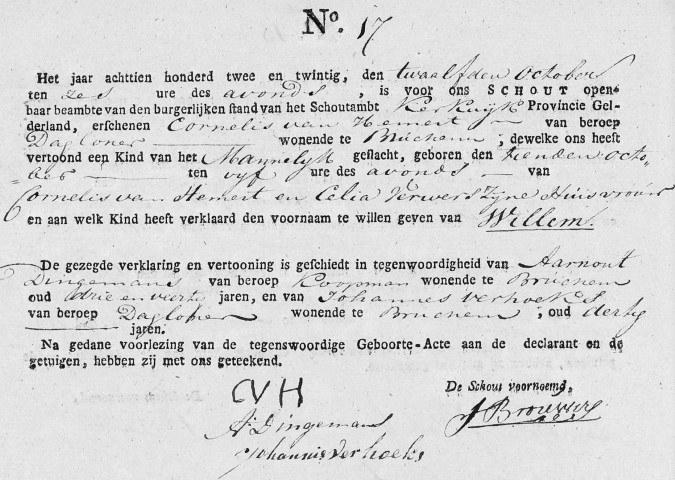 No. 17
Het jaar achttien honderd twee en twintig, den twaalfden October
ten zes ure des avonds, is voor ons SCHOUT open-
baar beambte van den burgerlijken stand van het Schoutambt Kerkwijk Provincie Gel-
derland, erschenen Cornelis van Hemert van beroep
Dagloner wonende te Brúchem, dewelke ons heeft
vertoond een Kind van het Mannelijk geslacht, geboren den tienden Octo-
ber ten vijf ure des avonds van
Cornelis van Hemert en Celia Verwers Zijne Húisvrouw
en aan welk Kind heeft verklaard den voornaam te willen geven van Willem.
De gezegde verklaring en vertooning is geschiedt in tegenwoordigheid van Aarnout
Dingemans van beroep Koopman wonende te Brúchem
oud drie en veertig jaren, en van Johannes Verhoeks
van beroep Dagloner wonende te Brúchem, oud dertig
jaren.
Na gedane voorlezing van de tegenswoordige Geboorte-Acte aan de declarant en de
getuigen, hebben zij met ons geteekend.
CVH
De Schout voornoemd,
A: Dingemans
J Brouwers
Johannis Verhoeks